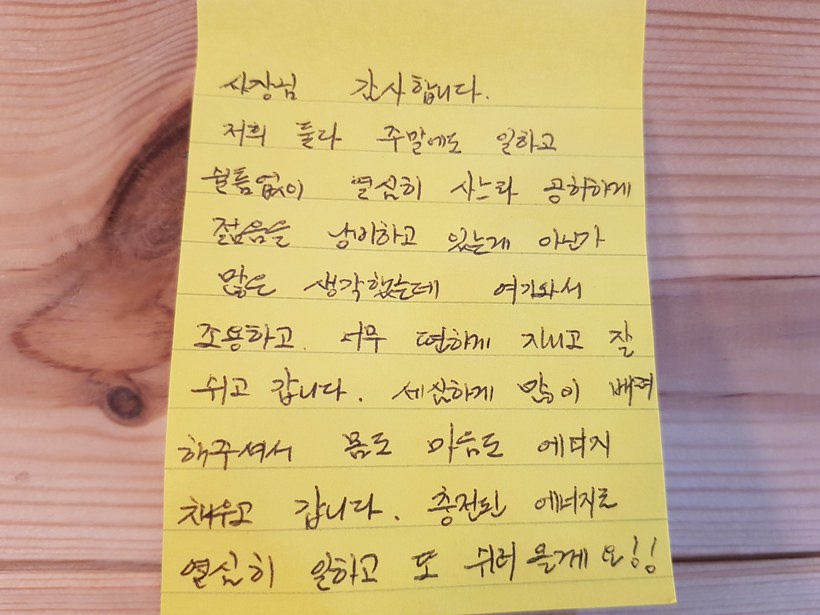 사장님 감사합니다.
저희 둘다 주말에도 일하고
쉴틈없이 열심히 사느라 공허하게
젊음을 낭비하고 있는게 아닌가
많은 생각했는데 여기와서
조용하고 너무 편하게 지내고 잘
쉬고 갑니다. 세심하게 많이 배려
해주셔서 몸도 마음도 에너지
채우고 갑니다. 충전된 에너지로
열심히 일하고 또 쉬러 올게요!!